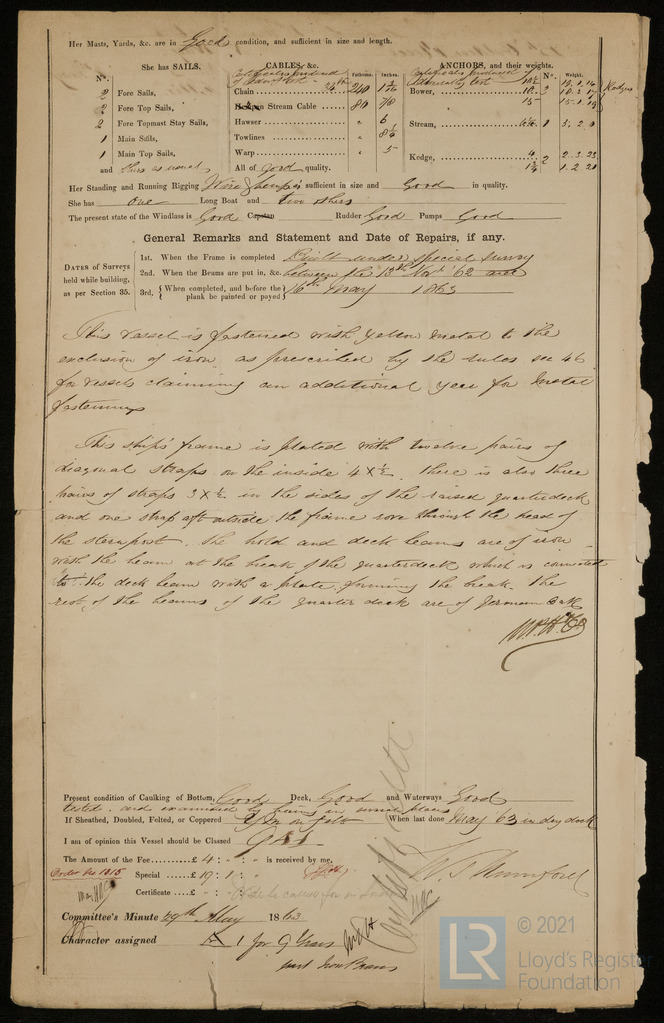 Her Masts, Yards, &c. are in Good condition, and sufficient in size and length.
She has SAILS. CABLES, &c. ANCHORS, and their weights.
N°. Fathoms. Inches. N°. Weight.
2 Fore Sails,
2 Fore Top Sails,
2 Fore Topmast Stay Sails,
1 Main Sails,
1 Main Top Sails,
and others as usual
Certificates produced
Chain 240
Stream Cable 80 7/8
Hawser " 6
Towlines "
Warp " 5
All of good quality.
Certificates produced of
Bower, 3
15 15.1.
Stream, 1 5.2.0
Kedge, 2 2.3.23
1.2.20
Her Standing and Running Rigging Wire & hemp is sufficient in size and Good in quality.
She has one Long Boat and two others
The present state of the Windlass is Good Capstan Rudder Good Pumps Good
General Remarks and Statement and Date of Repairs, if any.
DATES of Surveys held while building, as per Section 35.
1st. When the Frame is completed Built under special survey
2nd. When the Beams are put in, &c. between the 13th Novr '62 and
3rd. { When completed, and before the plank be painted or payed } 16th May 1863
This vessel is fastened with yellow metal to the
exclusion of iron as prescribed by the rules sec 46
for vessels claiming an additional year for metal
fastenings
This ship's frame is plated with twelve pairs of
diagonal straps on the inside 4 x ½. There is also three
pairs of straps 3 x ½ in the sides of the raised quarterdeck
and one strap aft outside the frame rove through the head of
the sternpost. The hold and deck beams are of iron
with the beam at the break of the quarterdeck which is connected
to the deck beam with a plate forming the break. The
rest of the beams of the quarter deck are of German Oak
Present condition of Caulking of Bottom, Good Deck, Good and Waterways Good
tested and examined by in several places
If Sheathed, Doubled, Felted, or Coppered When last done May 63 in dry dock
I am of opinion this Vessel should be Classed 9 A 1
The Amount of the Fee......£ 4 : " : " is received by me.
Special ......£ 19 : 1 :
Certificate ....£ - : - : -
Committee's Minute 29th May 1863
Character assigned A 1 for 9 Years
and Iron Beams
LR © 2021
Lloyd's Register
Foundation